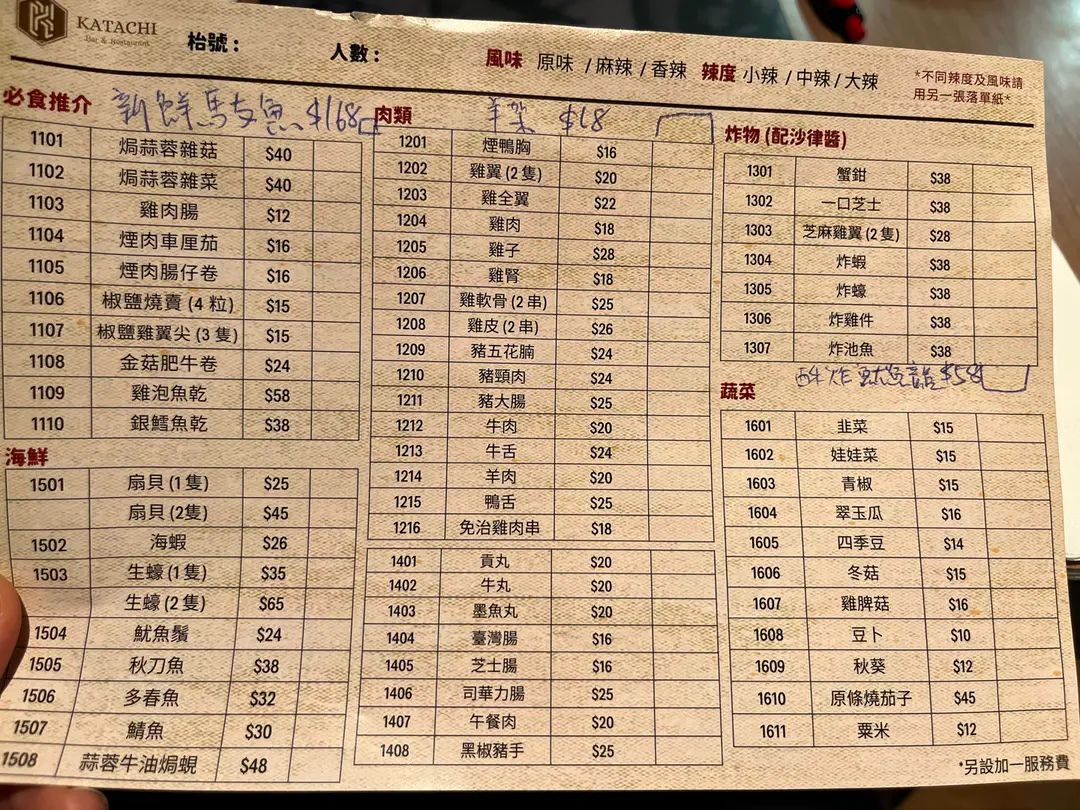 KATACHI
Bar & Restaurant
枱號：
人數：
風味 原味 / 麻辣 / 香辣 辣度 小辣 / 中辣 / 大辣
*不同辣度及風味請
用另一張落單紙*
必食推介 新鮮馬友魚 $168
1101 焗蒜蓉雜菇 $40
1102 焗蒜蓉雜菜 $40
1103 雞肉腸 $12
1104 煙肉車厘茄 $16
1105 煙肉腸仔卷 $16
1106 椒鹽燒賣 (4 粒) $15
1107 椒鹽雞翼尖 (3 隻) $15
1108 金菇肥牛卷 $24
1109 雞泡魚乾 $58
1110 銀鱈魚乾 $38
海鮮
1501 扇貝 (1 隻) $25
扇貝 (2隻) $45
1502 海蝦 $26
1503 生蠔 (1 隻) $35
生蠔 (2 隻) $65
1504 魷魚鬚 $24
1505 秋刀魚 $38
1506 多春魚 $32
1507 鯖魚 $30
1508 蒜蓉牛油焗蜆 $48
肉類 羊架 $68
1201 煙鴨胸 $16
1202 雞翼 (2 隻) $20
1203 雞全翼 $22
1204 雞肉 $18
1205 雞子 $28
1206 雞腎 $18
1207 雞軟骨 (2 串) $25
1208 雞皮 (2 串) $26
1209 豬五花腩 $24
1210 豬頸肉 $24
1211 豬大腸 $25
1212 牛肉 $20
1213 牛舌 $24
1214 羊肉 $20
1215 鴨舌 $25
1216 免治雞肉串 $18
1401 貢丸 $20
1402 牛丸 $20
1403 墨魚丸 $20
1404 臺灣腸 $16
1405 芝士腸 $16
1406 司華力腸 $25
1407 午餐肉 $20
1408 黑椒豬手 $25
炸物 (配沙律醬)
1301 蟹鉗 $38
1302 一口芝士 $38
1303 芝麻雞翼 (2 隻) $28
1304 炸蝦 $38
1305 炸蠔 $38
1306 炸雞件 $38
1307 炸池魚 $38
酥炸魷魚鬚 $58
蔬菜
1601 韭菜 $15
1602 娃娃菜 $15
1603 青椒 $15
1604 翠玉瓜 $16
1605 四季豆 $14
1606 冬菇 $15
1607 雞脾菇 $16
1608 豆卜 $10
1609 秋葵 $12
1610 原條燒茄子 $45
1611 粟米 $12
*另設加一服務費